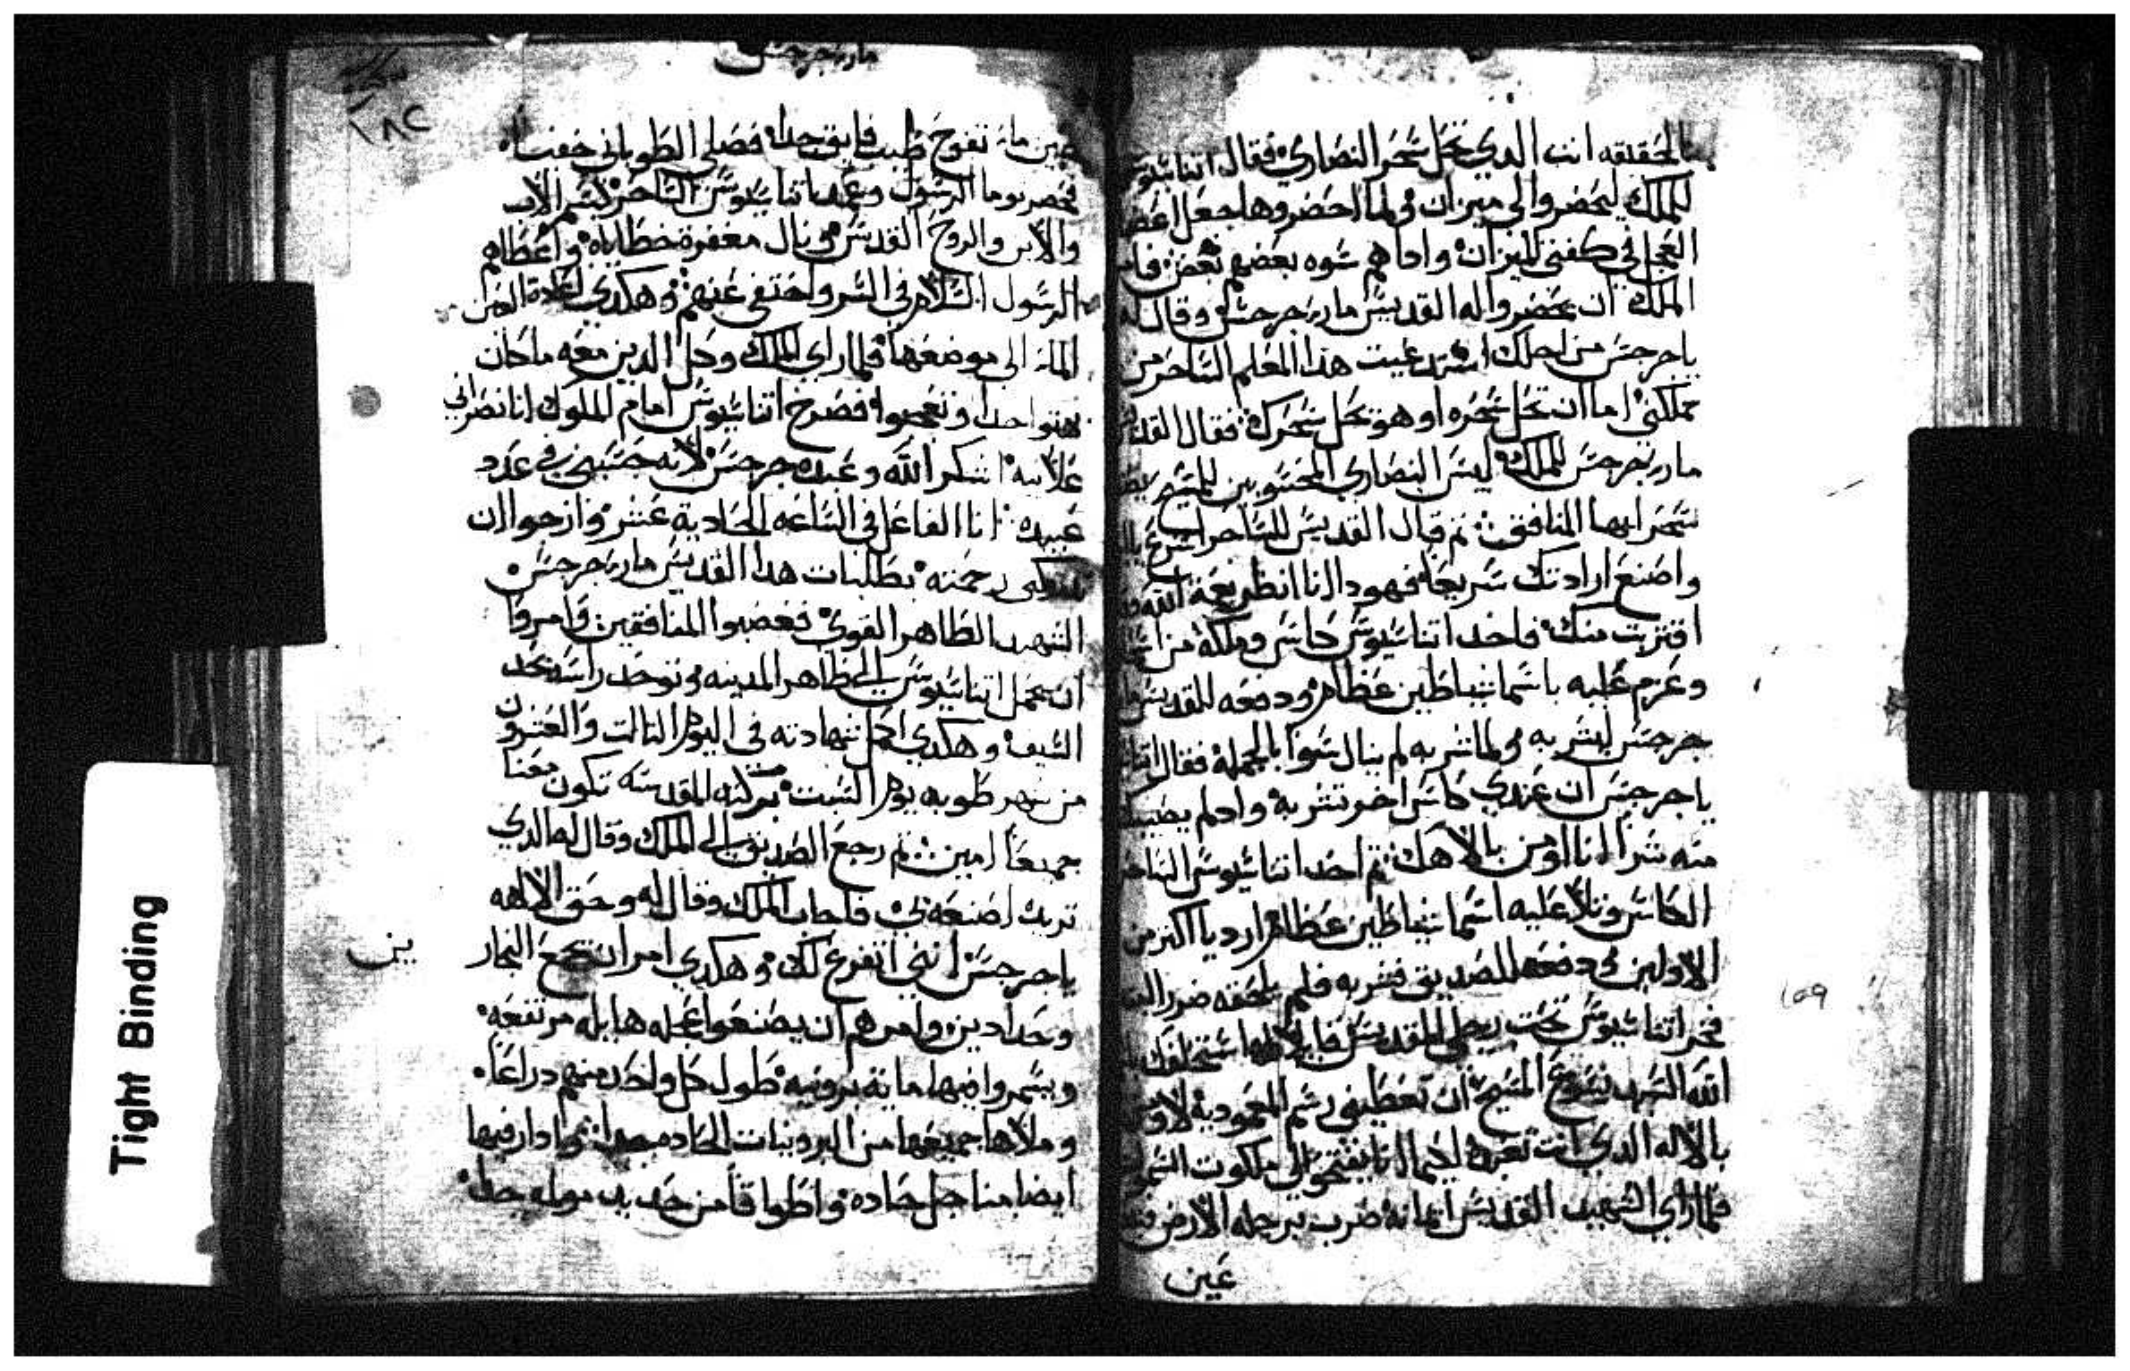 بالحقيقه انت الدي تحل سحر النصاري فقال اتناسيوس
للملك ليحضروا لي ميزان ولما احضروها جعل
العجل في كفتي الميزان وادا هم سوه بعضهم بعض
الملك ان يحضروا له القديس ماري جرجس وقال له
يا جرجس من اجلك استدعيت هدا المعلم الساحر من
مملكتي اما ان تحل سحره او هو يحل سحرك فقال
ماري جرجس للملك ليس النصاري المحسوبين للمسيح
سحر ايها المنافق ثم قال القديس للساحر اسرع
واصنع ارادتك سريعا فهودا انا انظر نعمة الله
اقتربت منك فاخد اتناسيوس كاس وملاه من
وعزم عليه باسما شياطين عظام ودفعه للقديس
جرجس ليشربه ولما شربه لم ينال سوا بالجمله فقال
يا جرجس ان عندي كاس اخر تشربه وادا لم يصيبك
منه شرا انا اومن بالاهك ثم اخد اتناسيوس الساحر
الكاس وتلا عليه اسما شياطين عظام ارديا اكتر من
الاولين ودفعه للصديق فشربه فلم يلحقه ضرر
فخر اتناسيوس تحت رجلي القديس قايلا استحلفك
الله يسوع المسيح ان تعطيني رسم المعموديه
بالاله الدي انت تعرفه لكيما انا يفتحوا لي ملكوت
فلما راي الشهيد القديس امانه ضرب برجله الارض
عين
١٥٩
ماري جرجس
١٨٢
عين ماء تفوح طيب فايق جدا فصلي الطوباني خفيا
فحضر توما الرسول وعمد اتناسيوس الساحر باسم الاب
والابن والروح القدس ونال مغفرة خطاياه واعطاهم
الرسول السلام في السر واختفي عنهم وهكدي
الماء الي موضعها فلما راي الملك وكل الدين معه ما كان
بهتوا جدا وتعجبوا فصرخ اتناسيوس امام الملوك انا نصراني
علانيه اشكر الله وعبده جرجس لانه حسبني في عدد
عبيده انا الفاعل في الساعه الحاديه عشر وارجوا ان
رحمته بطلبات هدا القديس ماري جرجس
الشهيد الطاهر القوي فغضبوا المنافقين وامروا
ان يحمل اتناسيوس الي ظاهر المدينه وتوخد راسه بحد
السيف وهكدي اكمل شهادته في اليوم التالت والعشرون
من شهر طوبه يوم السبت بركته المقدسه تكون معنا
جميعا امين ثم رجع الصديق الي الملك وقال له ما الدي
تريد اصنعه بي فاجاب الملك وقال له وحق الالهه
يا جرجس انني اتفرغ لك وهكدي امر ان تجمع النجار
ين
وحدادين وامرهم ان يصنعوا عجله هايله مرتفعه
ويسمروا فيها ماية برونيه طول كل واحد منهم دراعا
وملاها جميعها من البرونيات الحاده ادار فيها
ايضا مناجل حاده واطواقا من حديد مهوله جدا
Tight Binding